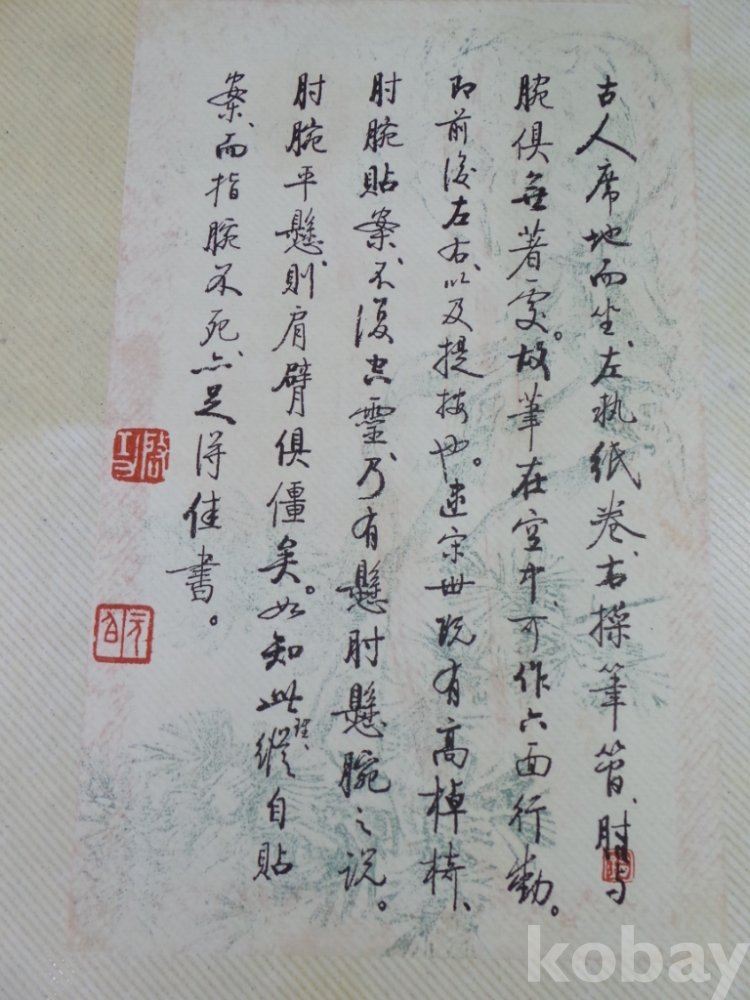 古人席地而坐、左執紙卷、右操筆管、肘與
腕俱無著處。故筆在空中、可作六面行動。
即前後左右、以及提按也。逮宋世既有高棹椅、
肘腕貼案、不復空靈、乃有懸肘懸腕之说。
肘腕平懸、則肩臂俱僵矣。如知此理、縱自貼
案、而指腕不死、亦足得佳書。
元白
kobay